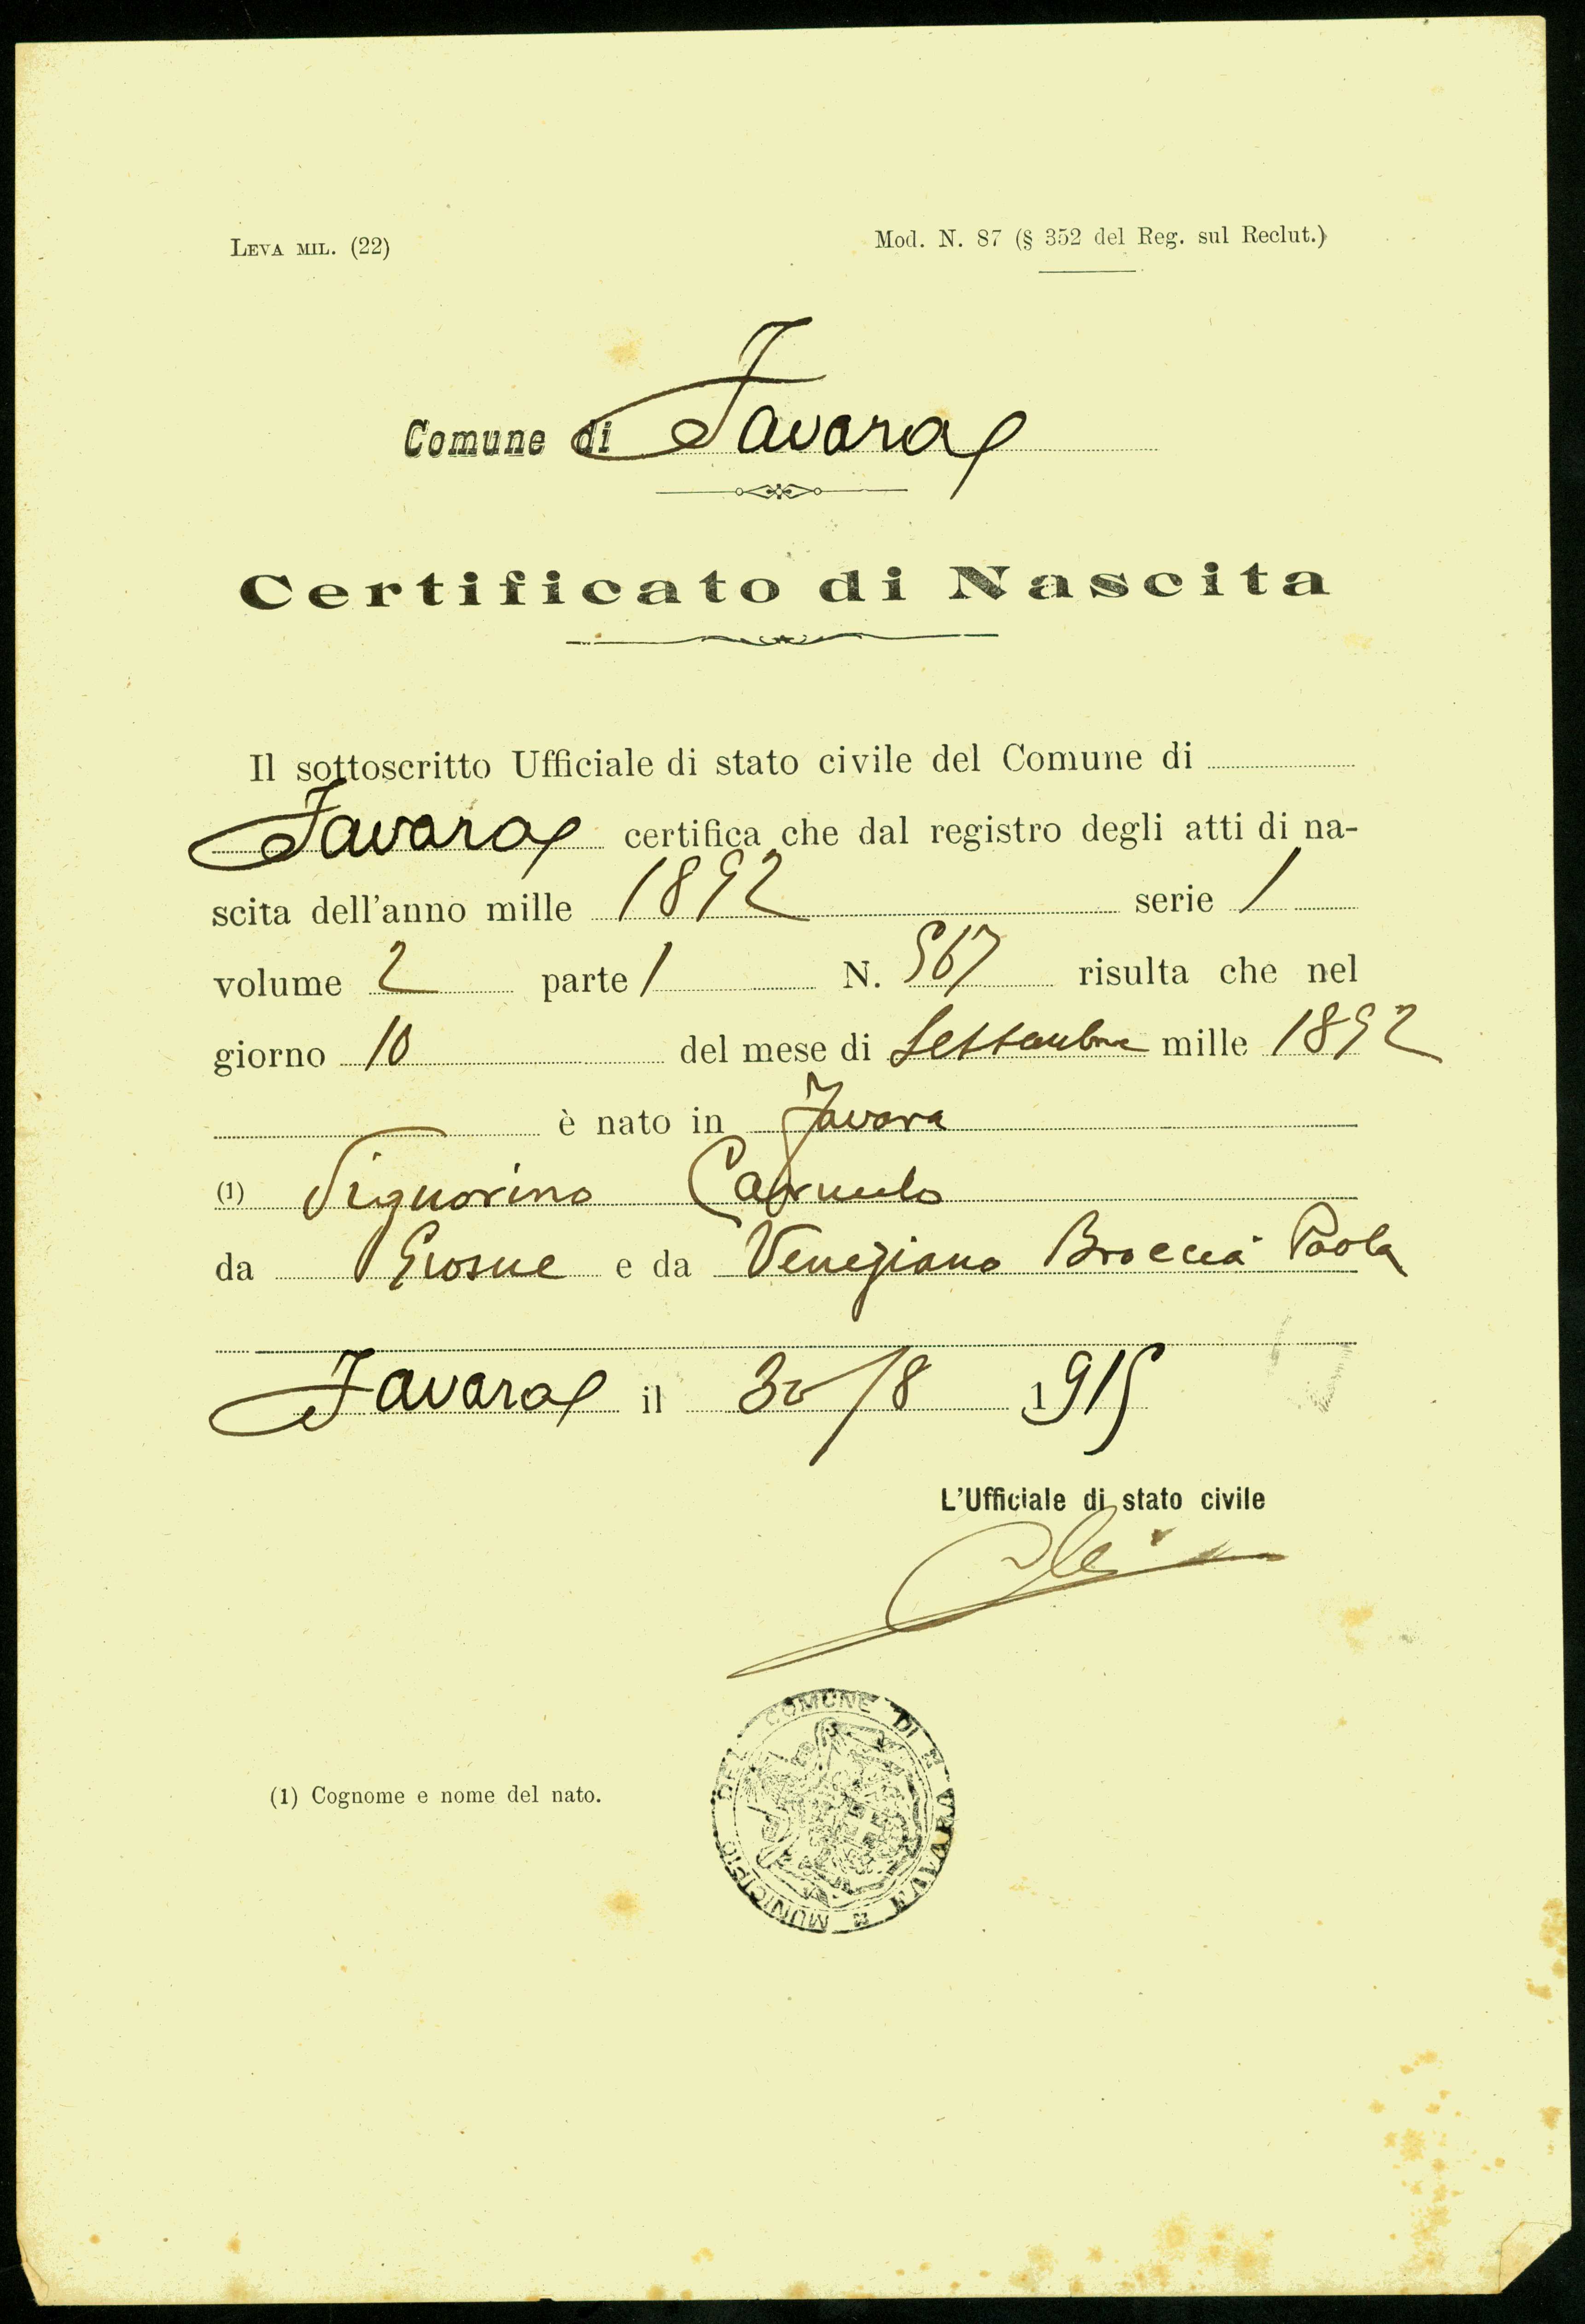 LEVA MIL. (22)
Mod. N. 87 (§ 352 del Reg. sul Reclut.)
Comune di Favara
Certificato di Nascita
Il sottoscritto Ufficiale di stato civile del Comune di
Favara certifica che dal registro degli atti di na-
scita dell'anno mille 1892 serie 1
volume 2 parte 1 N. 567 risulta che nel
giorno 10 del mese di Settembre mille 1892
è nato in Favara
(1) Signorino Carmelo
da Giosue e da Veneziano Broccia Paola
Favara il 30/8 1915
L'Ufficiale di stato civile
MUNICIPIO DEL COMUNE DI FAVARA
(1) Cognome e nome del nato.